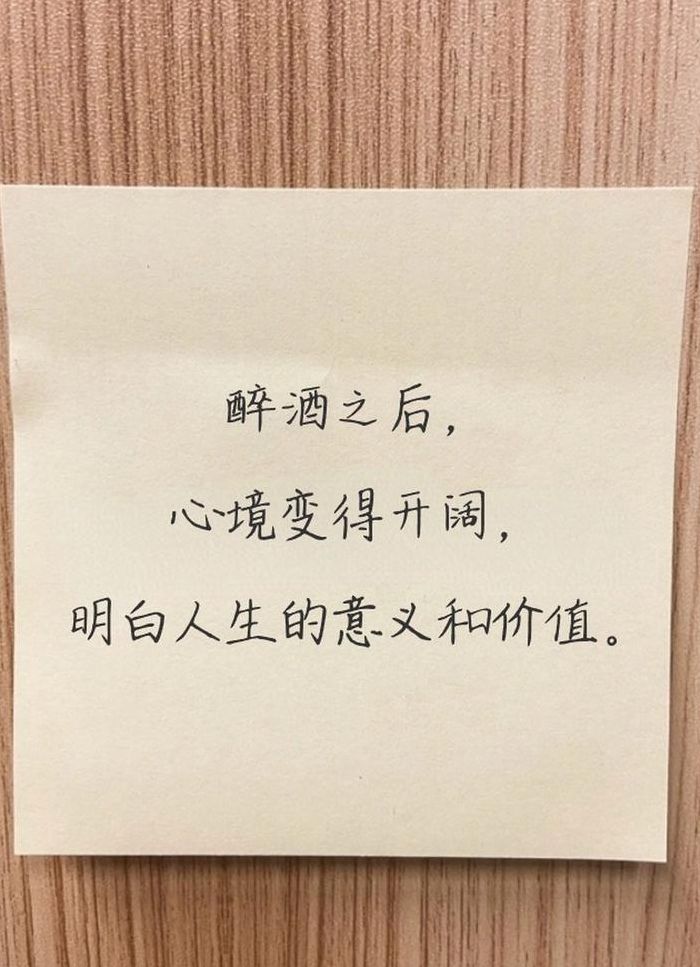 醉酒之后，
心境变得开阔，
明白人生的意义和价值。